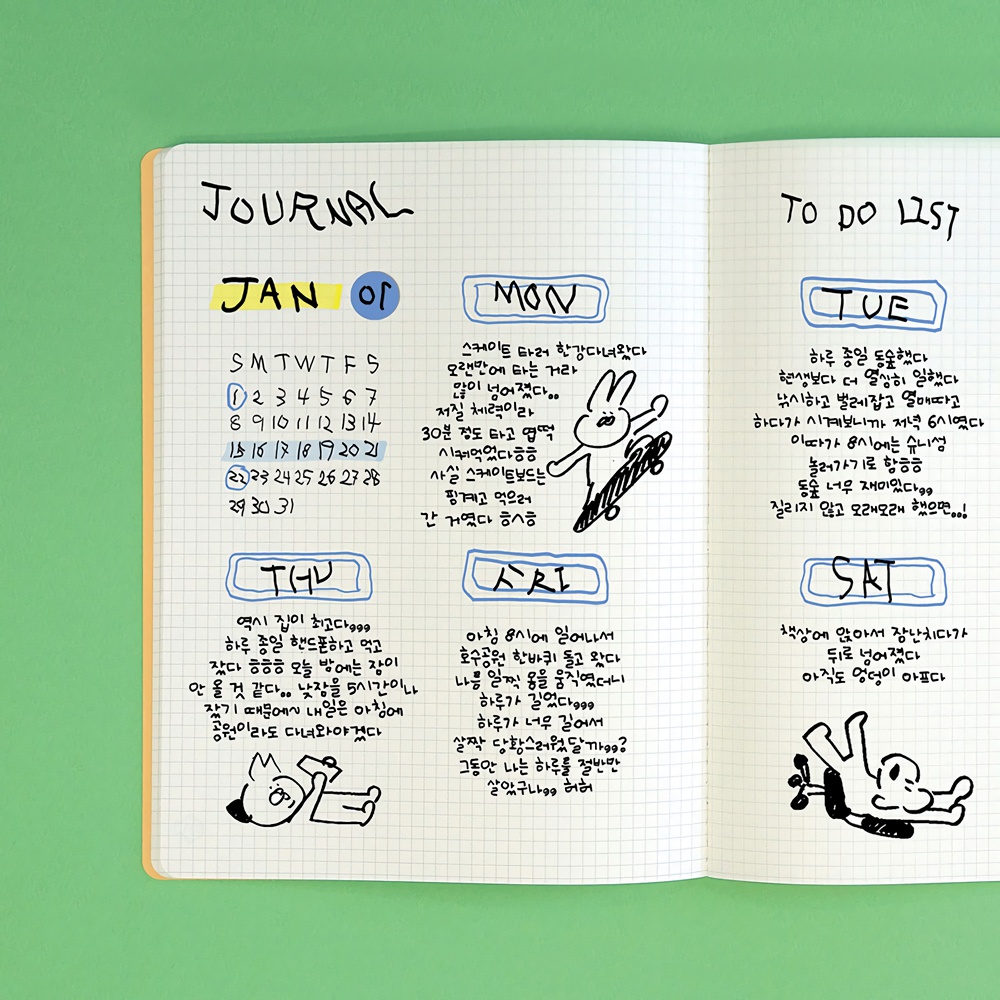 JOURNAL
JAN 01
S M T W T F S
1 2 3 4 5 6 7
8 9 10 11 12 13 14
15 16 17 18 19 20 21
22 23 24 25 26 27 28
29 30 31
MON
스케이트 타러 한강다녀왔다
오랜만에 타는 거라
많이 넘어졌다..
저질 체력이라
30분 정도 타고 엽떡
시켜먹었다ㅎㅎ
사실 스케이트보드는
핑계고 먹으러
간 거였다 ㅎㅅㅎ
THU
역시 집이 최고다,,,
하루 종일 핸드폰하고 먹고
잤다 ㅎㅎㅎ 오늘 밤에는 잠이
안 올 것 같다.. 낮잠을 5시간이나
잤기 때문에 내일은 아침에
공원이라도 다녀와야겠다
FRI
아침 8시에 일어나서
호수공원 한바퀴 돌고 왔다
나름 일찍 몸을 움직였더니
하루가 길었다,,,
하루가 너무 길어서
살짝 당황스러웠달까,,?
그동안 나는 하루를 절반만
살았구나,, 허허
TO DO LIST
TUE
하루 종일 동숲했다
현생보다 더 열심히 일했다
낚시하고 벌레잡고 열매따고
하다가 시계보니까 저녁 6시였다
이따가 8시에는 슈니섬
놀러가기로 함ㅎㅎ
동숲 너무 재미있다,,
질리지 않고 오래오래 했으면..!
SAT
책상에 앉아서 장난치다가
뒤로 넘어졌다
아직도 엉덩이 아프다